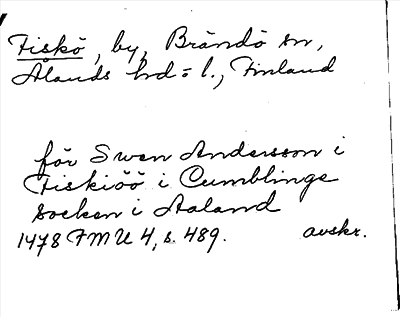 Fiskö, by, Brändö sn,
Ålands hd = l., Finland
för Swen Andersson i
Fiskiöö i Cumblinge
socken i Aaland
1478 FMU 4, s. 489. avskr.